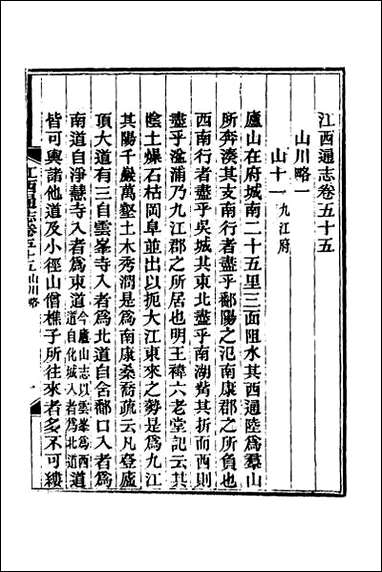 江西通志卷五十五
山川略一
山十一 九江府
廬山在府城南二十五里三面阻水其西通陸為羣山
所奔湊其支南行者盡乎鄱陽之氾南康郡之所負也
西南行者盡乎吳城其東北盡乎南湖觜其折而西則
盡乎湓浦乃九江郡之所居也明王禕六老堂記云其
陰土燥石枯岡阜並出以扼大江東來之勢是為九江
其陽千巖萬壑土木秀潤是為南康桑喬疏云凡登廬
頂大道有三自雲峯寺入者為北道自含鄱口入者為
南道自淨慧寺入者為東道今廬山志以雲峯為西道自化城入者為北道道
皆可輿諸他道及小徑山僧樵子所往來者多不可縷
江西通志卷五十五 山川略 一